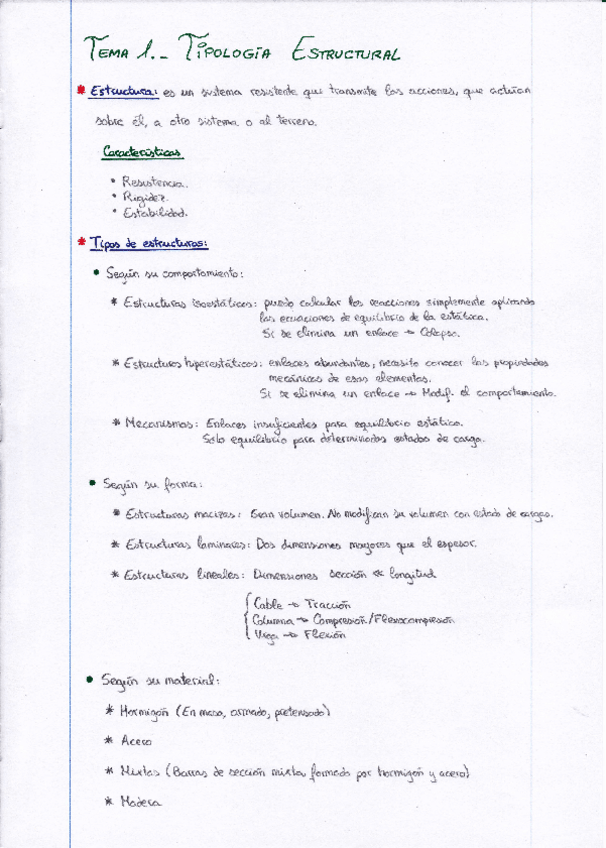 Tema 1.- Tipología Estructural
* Estructura: es un sistema resistente que transmite las acciones, que actúan
sobre él, a otro sistema o al terreno.
Características
• Resistencia.
• Rigidez.
• Estabilidad.
* Tipos de estructuras:
• Según su comportamiento:
* Estructuras isostáticas: puedo calcular las reacciones simplemente aplicando
las ecuaciones de equilibrio de la estática.
Si se elimina un enlace → Colapso.
* Estructuras hiperestáticas: enlaces abundantes, necesito conocer las propiedades
mecánicas de esos elementos.
Si se elimina un enlace → Modif. el comportamiento.
* Mecanismos: Enlaces insuficientes para equilibrio estático.
Solo equilibrio para determinados estados de carga.
• Según su forma:
* Estructuras macizas: Gran volumen. No modifican su volumen con estado de cargas.
* Estructuras laminares: Dos dimensiones mayores que el espesor.
* Estructuras lineales: Dimensiones sección << longitud
Cable → Tracción
Columna → Compresión/Flexocompresión
Viga → Flexión
• Según su material:
* Hormigón (En masa, armado, pretensado)
* Acero
* Mixtas (Barras de sección mixta formado por hormigón y acero)
* Madera